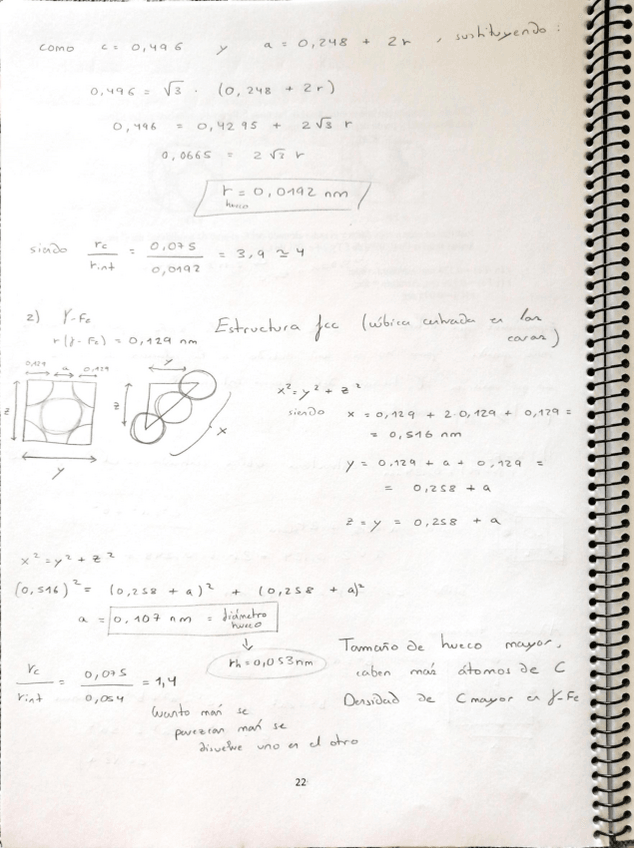 como c = 0,496 y a = 0,248 + 2r , sustituyendo:
0,496 = √3 · (0,248 + 2r)
0,496 = 0,4295 + 2√3 r
0,0665 = 2√3 r
r = 0,0192 nm
hueco
siendo rc/rint = 0,075/0,0192 = 3,9 ≃ 4
2) γ-Fe
Estructura fcc (cúbica centrada en las caras)
r(γ-Fe) = 0,129 nm
0,129 a 0,129
z
y
y
z
x
x² = y² + z²
siendo x = 0,129 + 2·0,129 + 0,129 =
= 0,516 nm
y = 0,129 + a + 0,129 =
= 0,258 + a
z = y = 0,258 + a
x² = y² + z²
(0,516)² = (0,258 + a)² + (0,258 + a)²
a = 0,107 nm = diámetro hueco
↓
rh = 0,053 nm
rc/rint = 0,075/0,054 = 1,4
Cuanto más se
parezcan más se
disuelve uno en el otro
Tamaño de hueco mayor,
caben más átomos de C
Densidad de C mayor en γ-Fe
22